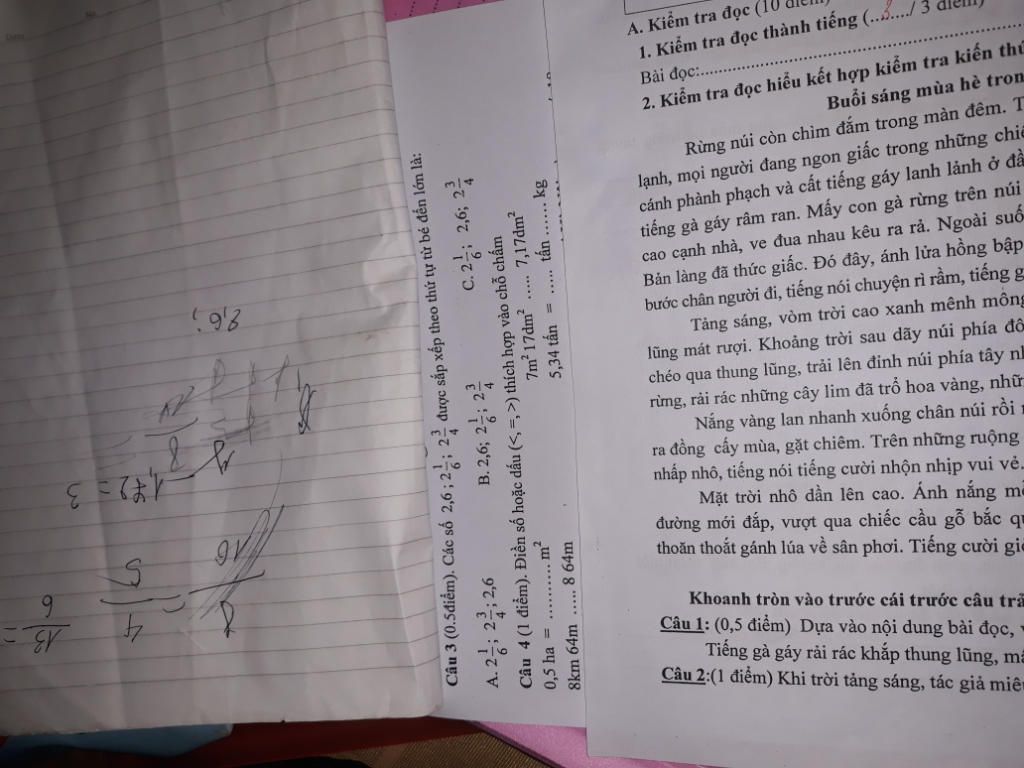 A. Kiểm tra đọc (10 điểm)
1. Kiểm tra đọc thành tiếng (..3..../ 3 điểm)
Bài đọc:
2. Kiểm tra đọc hiểu kết hợp kiểm tra kiến thứ
Buổi sáng mùa hè tron
Rừng núi còn chìm đắm trong màn đêm. T
lạnh, mọi người đang ngon giấc trong những chiế
cánh phành phạch và cất tiếng gáy lanh lảnh ở đầ
tiếng gà gáy râm ran. Mấy con gà rừng trên núi
cao cạnh nhà, ve đua nhau kêu ra rả. Ngoài suố
Bản làng đã thức giấc. Đó đây, ánh lửa hồng bập
bước chân người đi, tiếng nói chuyện rì rầm, tiếng g
Tảng sáng, vòm trời cao xanh mênh mông
lũng mát rượi. Khoảng trời sau dãy núi phía đô
chéo qua thung lũng, trải lên đỉnh núi phía tây nh
rừng, rải rác những cây lim đã trổ hoa vàng, nhữ
Nắng vàng lan nhanh xuống chân núi rồi
ra đồng cấy mùa, gặt chiêm. Trên những ruộng
nhấp nhô, tiếng nói tiếng cười nhộn nhịp vui vẻ.
Mặt trời nhô dần lên cao. Ánh nắng mỗ
đường mới đắp, vượt qua chiếc cầu gỗ bắc qu
thoăn thoắt gánh lúa về sân phơi. Tiếng cười giò
Khoanh tròn vào trước cái trước câu trả
Câu 1: (0,5 điểm) Dựa vào nội dung bài đọc,
Tiếng gà gáy rải rác khắp thung lũng, mà
Câu 2:(1 điểm) Khi trời tảng sáng, tác giả miê
Câu 3 (0,5điểm). Các số 2,6; 2 1/6; 2 3/4 được sắp xếp theo thứ tự từ bé đến lớn là:
A. 2 1/6; 2 3/4; 2,6 B. 2,6; 2 1/6; 2 3/4 C. 2 1/6; 2,6; 2 3/4
Câu 4 (1 điểm). Điền số hoặc dấu (<, =, >) thích hợp vào chỗ chấm
0,5 ha = .......... m² 7m² 17dm² ...... 7,17dm²
8km 64m ..... 8 64m 5,34 tấn = ..... tấn ...... kg